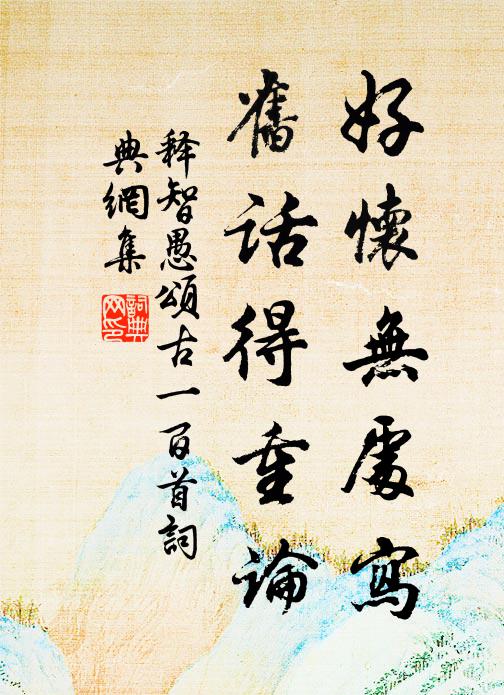 好懷無處寫
舊話得重論
释智愚頌古一百首詞
典網集
詞典
网印